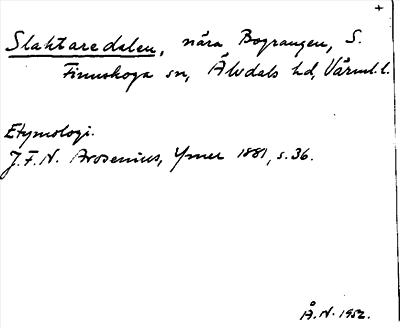 +
Slaktaredalen, nära Bograngen, S.
Finnskoga sn, Älvdals hd, Värml. l.
Etymologi.
J.F.N. Arosenius, Ymer 1881, s. 36.
Å.N. 1952.